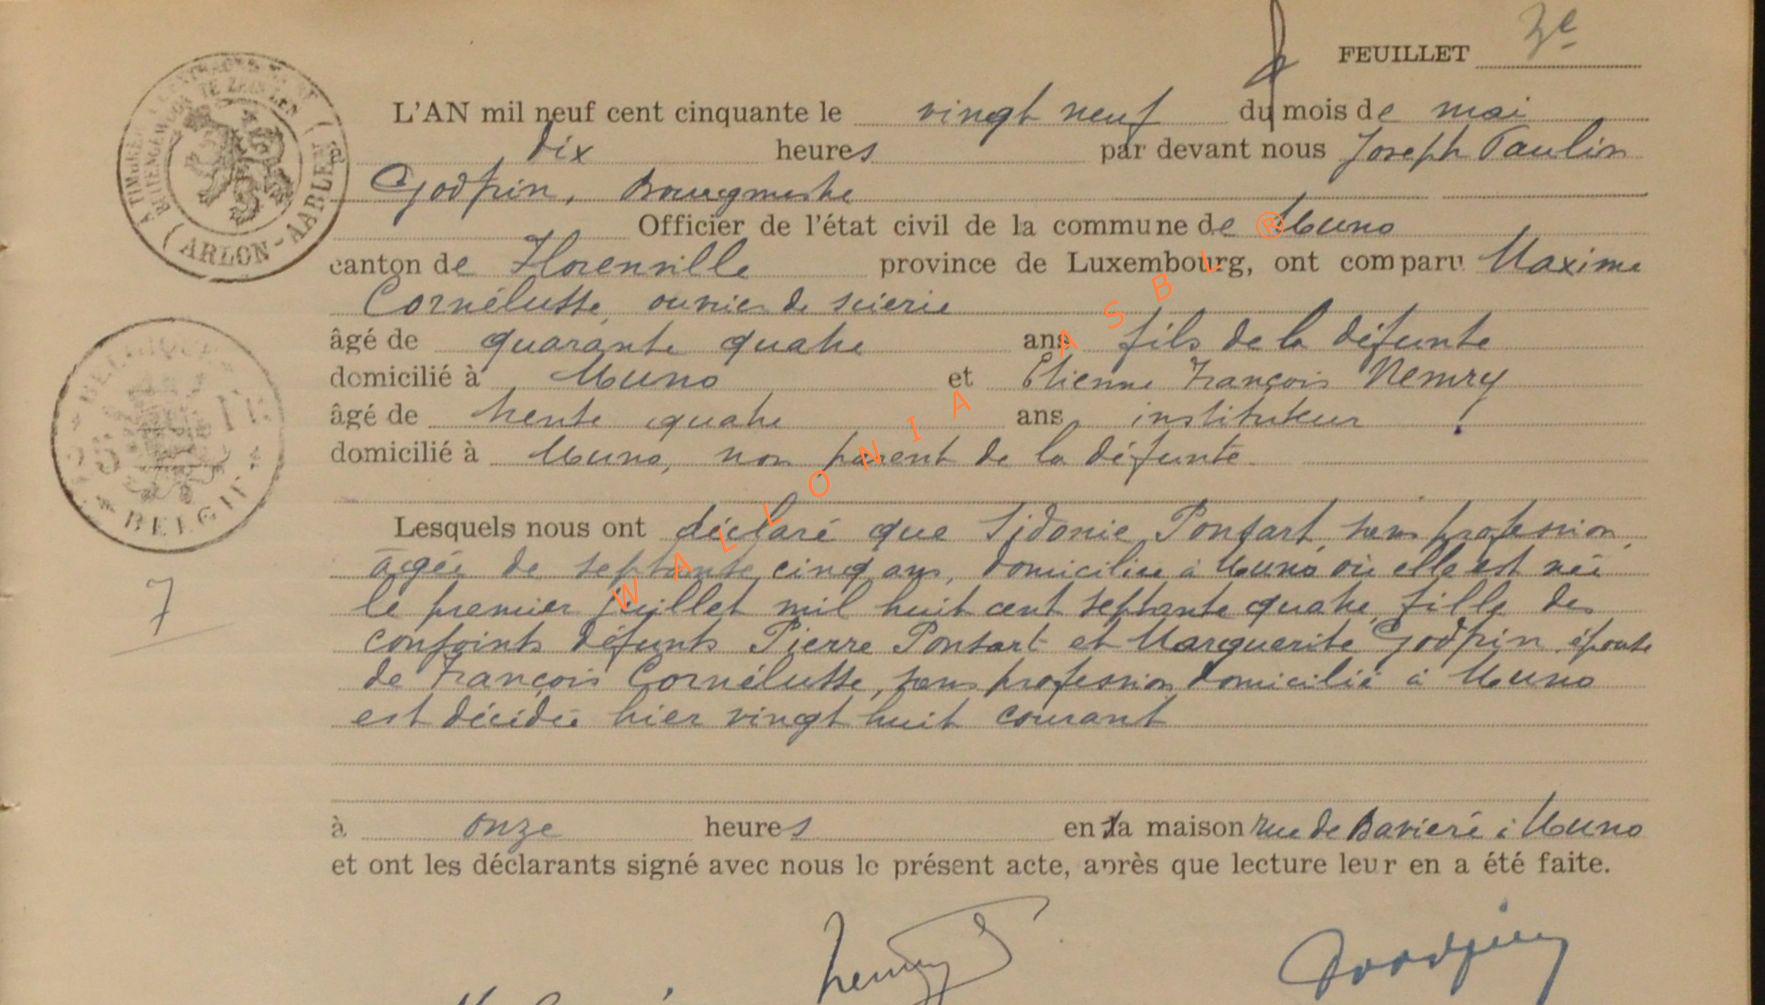 FEUILLET 3e
L'AN mil neuf cent cinquante le vingt neuf du mois de mai
dix heures par devant nous Joseph Paulin
Godfrin, Bourgmestre
Officier de l'état civil de la commune de Muno
canton de Florenville province de Luxembourg, ont comparu Maxime
Cornélusse, ouvrier de scierie
âgé de quarante quatre ans fils de la défunte
domicilié à Muno et Etienne François Nemry
âgé de trente quatre ans instituteur
domicilié à Muno, non parent de la défunte
Lesquels nous ont déclaré que Sidonie Ponsart, sans profession,
âgée de septante cinq ans, domiciliée à Muno où elle est née
le premier juillet mil huit cent septante quatre, fille des
conjoints défunts Pierre Ponsart et Marguerite Godfrin, épouse
de François Cornélusse, sans profession, domicilié à Muno
est décédée hier vingt huit courant
7
à onze heures en sa maison rue de Bavière à Muno
et ont les déclarants signé avec nous le présent acte, après que lecture leur en a été faite.
Nemry
Godfrin
ARLON-AARLEN
BELGIQUE
BELGIË
WALLONIA ASBL ®